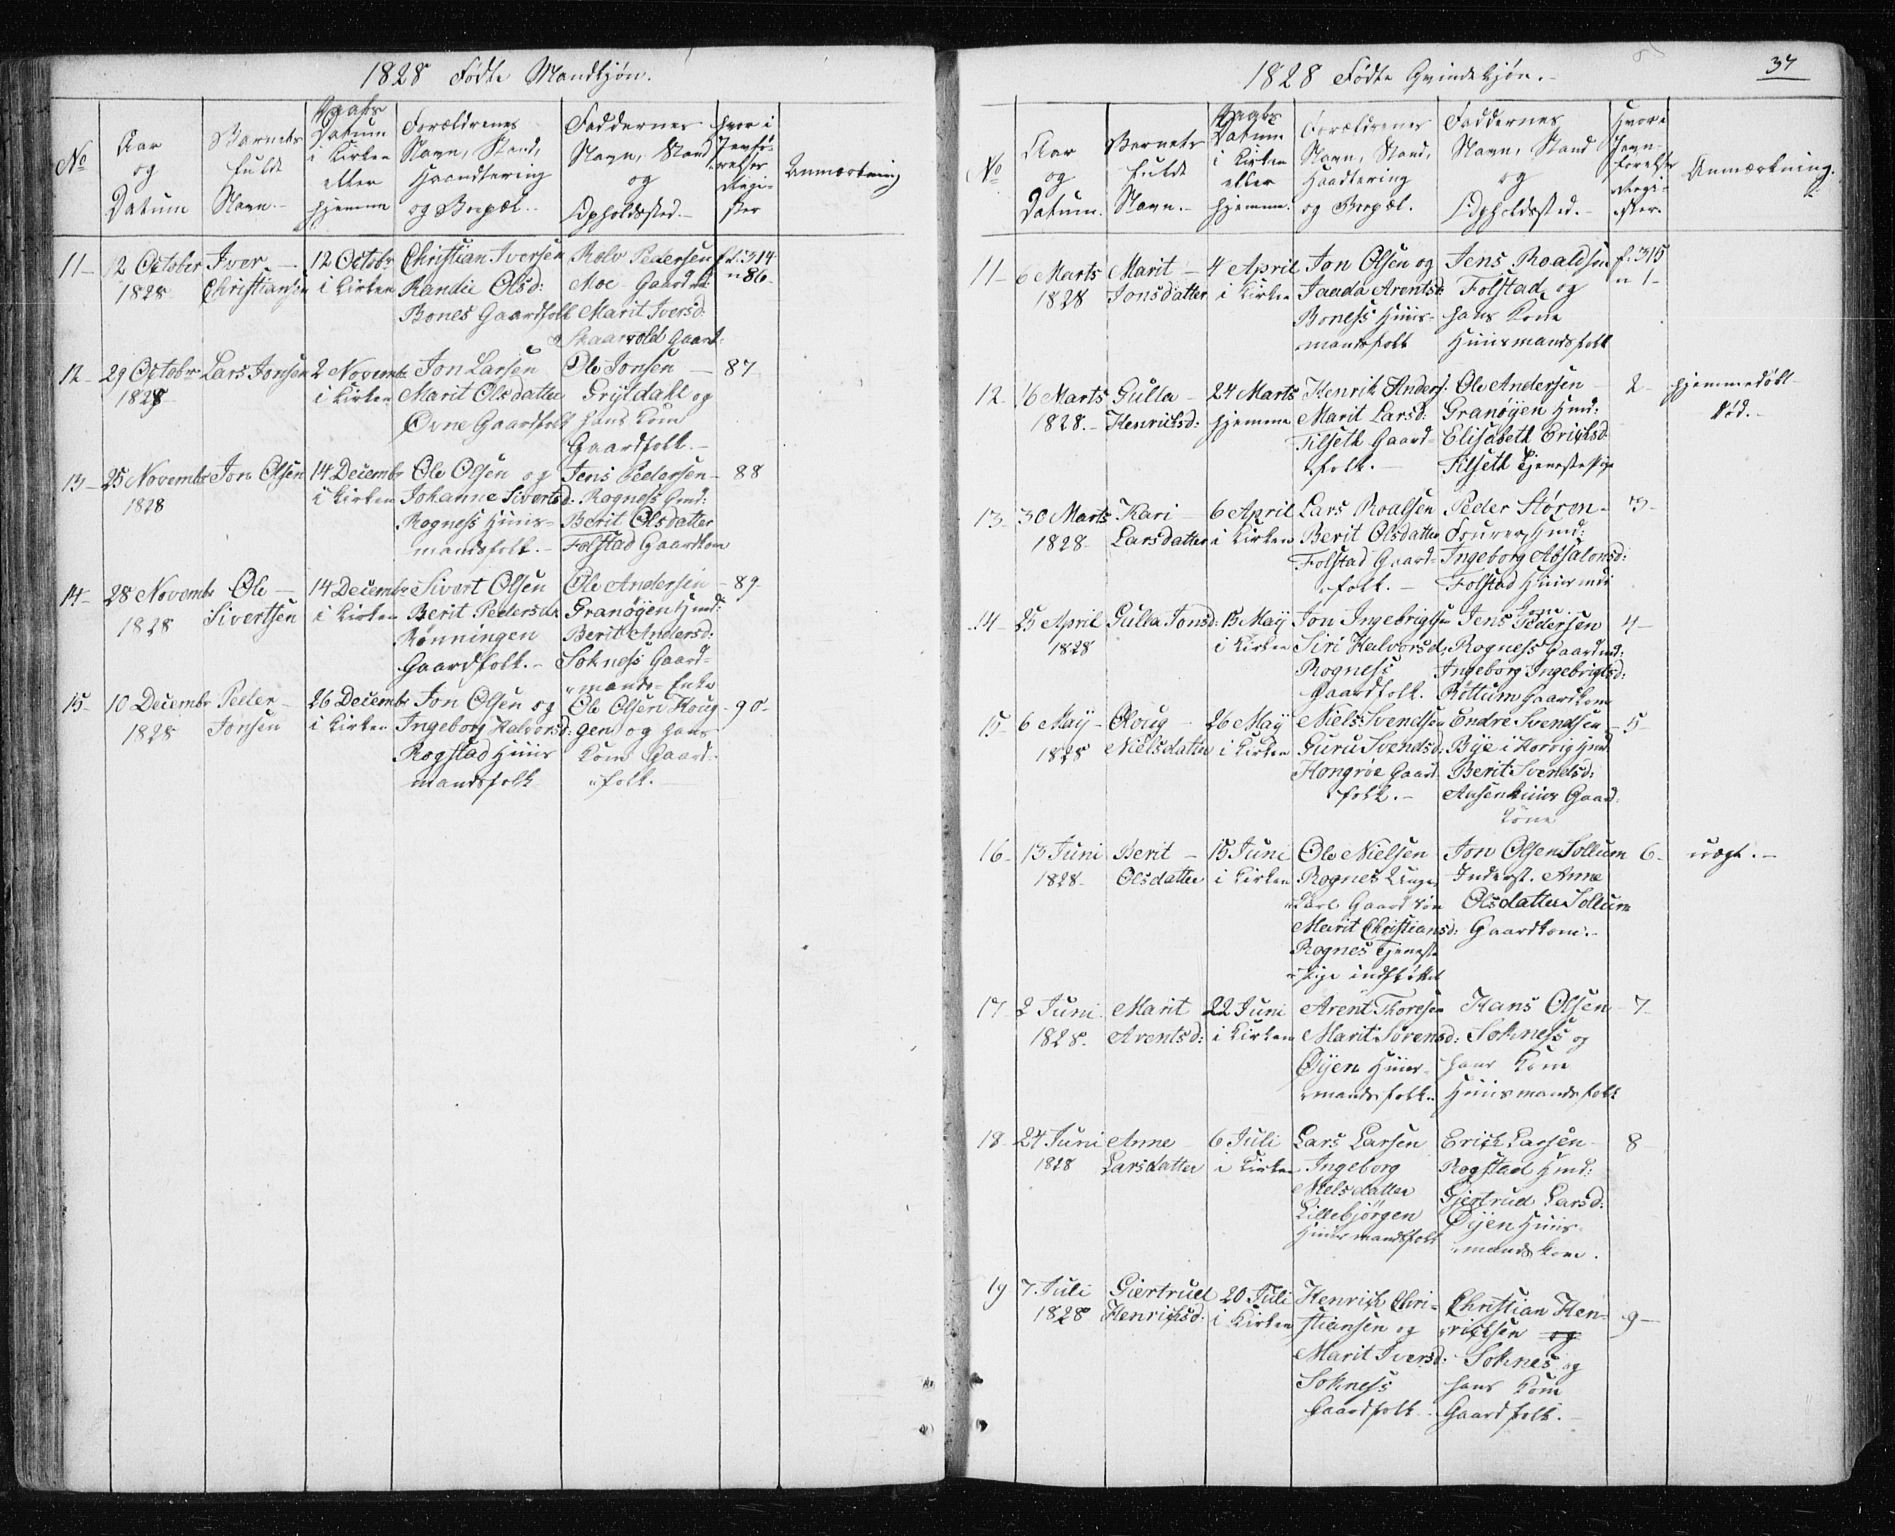 1828 Fødte Mandkjøn.
No
Aar
og
Datum
Barnets
fulde
Navn.
Daabs
Datum
i Kirken
eller
hjemme
Forældrenes
Navn, Stand,
Haandtering
og Bopæl.
Faddernes
Navn, Stand
og
Opholdssted.
hvor i
Jevnfø-
relses
Regi-
ster
Anmærkning
11
12 October
1828
Iver
Christiansen
12 Octobr
i Kirken
Christian Iversen
Randie Olsd:
Bones Gaardfolk
Rolv Pedersen
Moe Gaardm:
Marit Iversd:
Skaarvold Gaard-
f: 314
n 86.
12
29 Octobr
1828
Lars Jonsen
2 Novembr
i Kirken
Jon Larsen
Marit Olsdatter
Øvne Gaardfolk
Ole Jonsen
Grytdahl og
hans Kone
Gaardfolk.
87
13
25 Novembr
1828
Jon Olsen
14 Decembr
i Kirken
Ole Olsen og
Johanne Sivertsd:
Rogness Huus-
mandsfolk.
Jens Pedersen
Rogness Gmd:
Berit Olsdatter
Folstad Gaardkone
88
14
28 Novembr
1828
Ole
Sivertsen
14 Decembr
i Kirken
Sivert Olsen
Berit Pedersda
Rønningen
Gaardfolk.
Ole Andersen
Granøyen Hmd:
Berit Andersd:
Sokness Gaard-
mands Enke
89
15
10 Decembr
1828
Peder
Jonsen
26 Decembr
i Kirken
Jon Olsen og
Ingeborg Halvorsd:
Rogstad Huus
mandsfolk
Ole Olsen Houg-
gen og hans
Kone Gaard-
folk.
90
1828 Fødte Qvindekjøn.
37
No
Aar
og
Datum.
Barnets
fulde
Navn.
Daabs
Datum
i Kirken
eller
hjemme.
Forældrenes
Navn, Stand,
Haandtering
og Bopæl.
Faddernes
Navn, Stand
og
Opholdssted.
Hvor i
Jevn-
førelses
Regi-
ster.
Anmærkning.
11
6 Marts
1828
Marit
Jonsdatter
4 April
i Kirken
Jon Olsen og
Jaada Arentsd:
Boness Huus-
mandsfolk
Jens Roaldsen
Folstad og
hans Kone
Huusmandsfolk
f: 315
n 1
12
16 Marts
1828.
Gulla
Henriksd:
24 Marts
hjemme
Henrik Anders.
Marit Larsd:
Tilseth Gaard-
folk.
Ole Andersen
Granøyen Hmd:
Elisabeth Eriksd:
Tilseth Tjenestepige
2
hjemmedøbt
død.
13
30 Marts
1828
Kari
Larsdatter
6 April
i Kirken
Lars Roalsen
Berit Olsdatter
Folstad Gaard-
folk.
Peder Støren
Hmd:
Ingeborg Absalonsd:
Folstad Huusmds
Kone.
3
14
25 April
1828
Gulla Jonsd:
15 May
i Kirken
Jon Ingebrigtsen
Siri Halvorsd:
Rogness
Gaardfolk.
Jens Pedersen
Rogness Gaardmd:
Ingeborg Ingebrigtsd:
Røttum Gaardkone
4
15
6 May
1828
Oloug
Nielsdatter
26 May
i Kirken
Niels Svendsen
Guru Svendsd:
Hongrøe Gaard
folk.
Endre Svendsen
Bye i Horrig Hmd
Berit Svendsd:
Gaard-
kone
5
16
13 Juni
1828
Berit
Olsdatter
15 Juni
i Kirken
Ole Nielsen
Rognes Unge-
karl Gaardsøn
Marit Christiansd:
Rognes Tjeneste
pige
Jon Olsen Sollum
Inderst. Anne
Olsdatter Sollum
Gaardkone.
6
uægt.
17
2 Juni
1828.
Marit
Arentsd:
22 Juni
i Kirken
Arent Thoresen
Marit Sørensd:
Øyen Huus-
mandsfolk.
Hans Olsen
Sokness og
hans Kone
Huusmandsfolk
7
18
24 Juni
1828
Anne
Larsdatter
6 Juli
i Kirken
Lars Larsen
Ingeborg
Nielsdatter
Lillebjørgen
Huusmandsfolk
Erick Larsen
Rogstad Hmd:
Giertrud Larsd:
Øyen Huus-
mandskone.
8
19
7. Juli
1828
Giertrued
Henricksd:
20 Juli
i Kirken
Henrick Chri-
stiansen og
Marit Iversd:
Sokness
Gaardfolk
Christian Hen-
ricksen og
Soknes og
hans Kone
Gaardfolk.
9